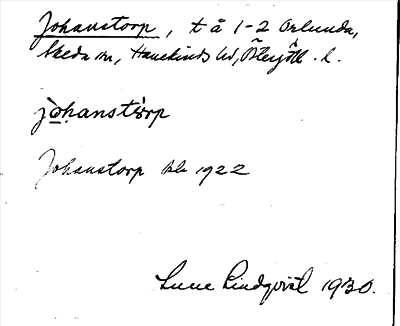 Johanstorp, t å 1-2 Orlunda,
Skeda sn, Hanekinds hd, Östergötl. l.
johanstorp
Johanstorp jb 1922
Sune Lindqvist 1930.